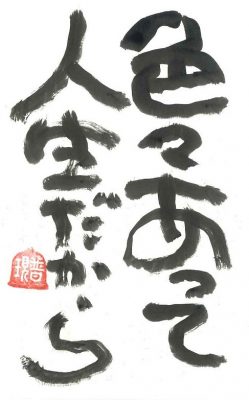 色々あって
人生だから